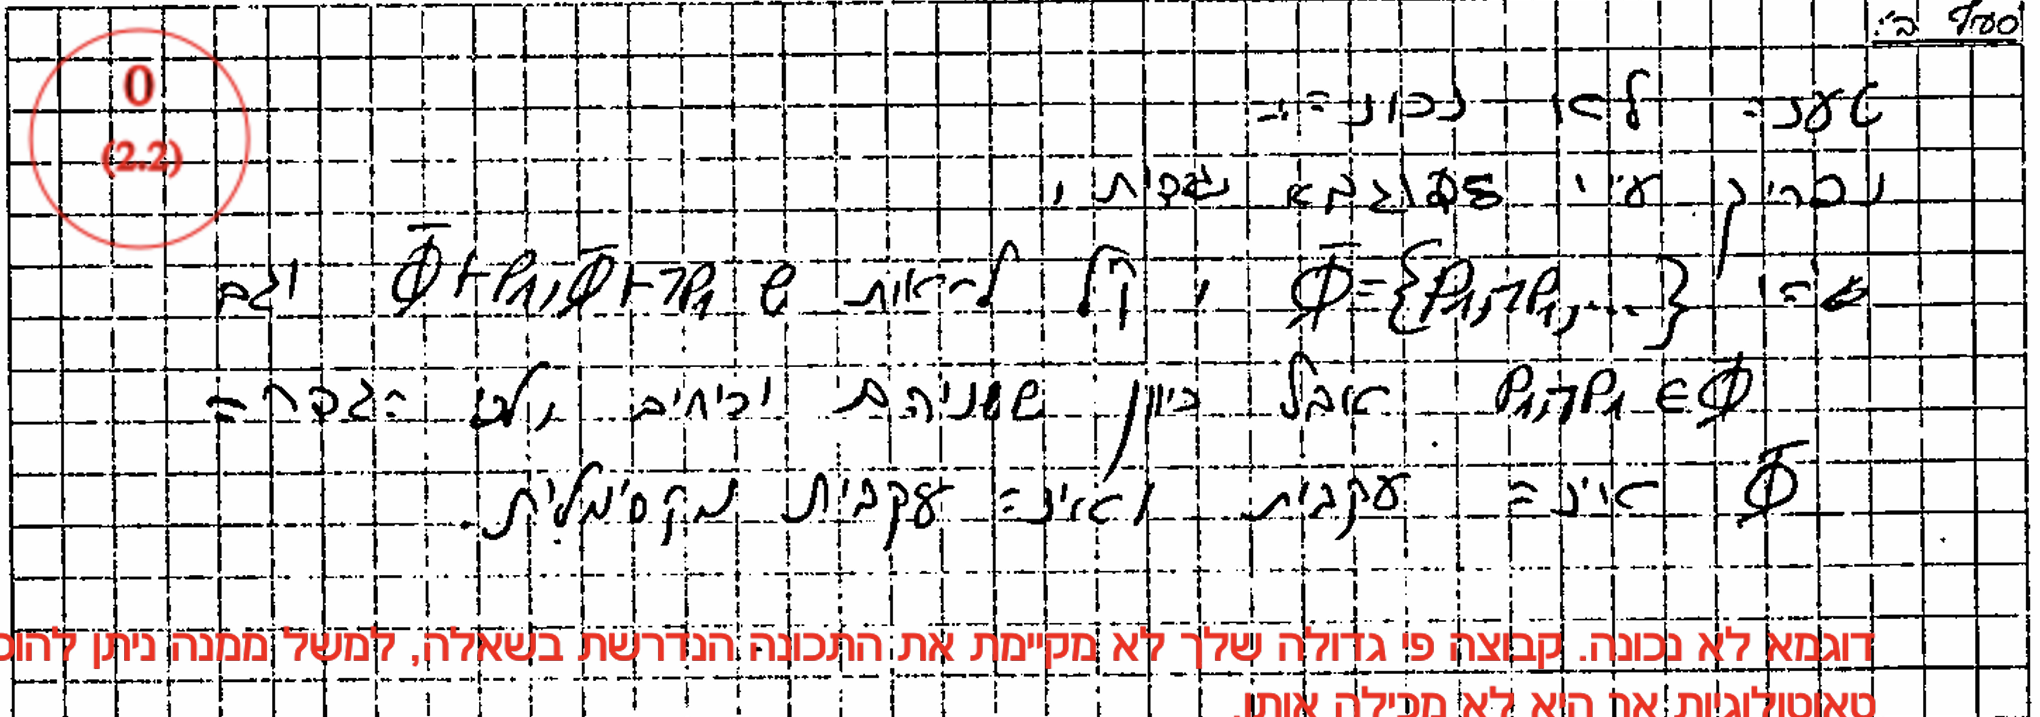 סעיף ב':
טענה לא נכונה:-
נפריך ע"י דוגמא נגדית,
יהי Φ={P₁,¬P₁,...} , קל לראות ש Φ⊢P₁,Φ⊢¬P₁ וגם
P₁,¬P₁∈Φ אבל כיוון ששניהם יכיחים, לפי הגדרה
Φ אינה עקבית ואינה עקבית מקסימלית.
0
(2.2)
דוגמא לא נכונה. קבוצה פי גדולה שלך לא מקיימת את התכונה הנדרשת בשאלה, למשל ממנה ניתן
טאוטולוגיות אך היא לא מכילה אותן.